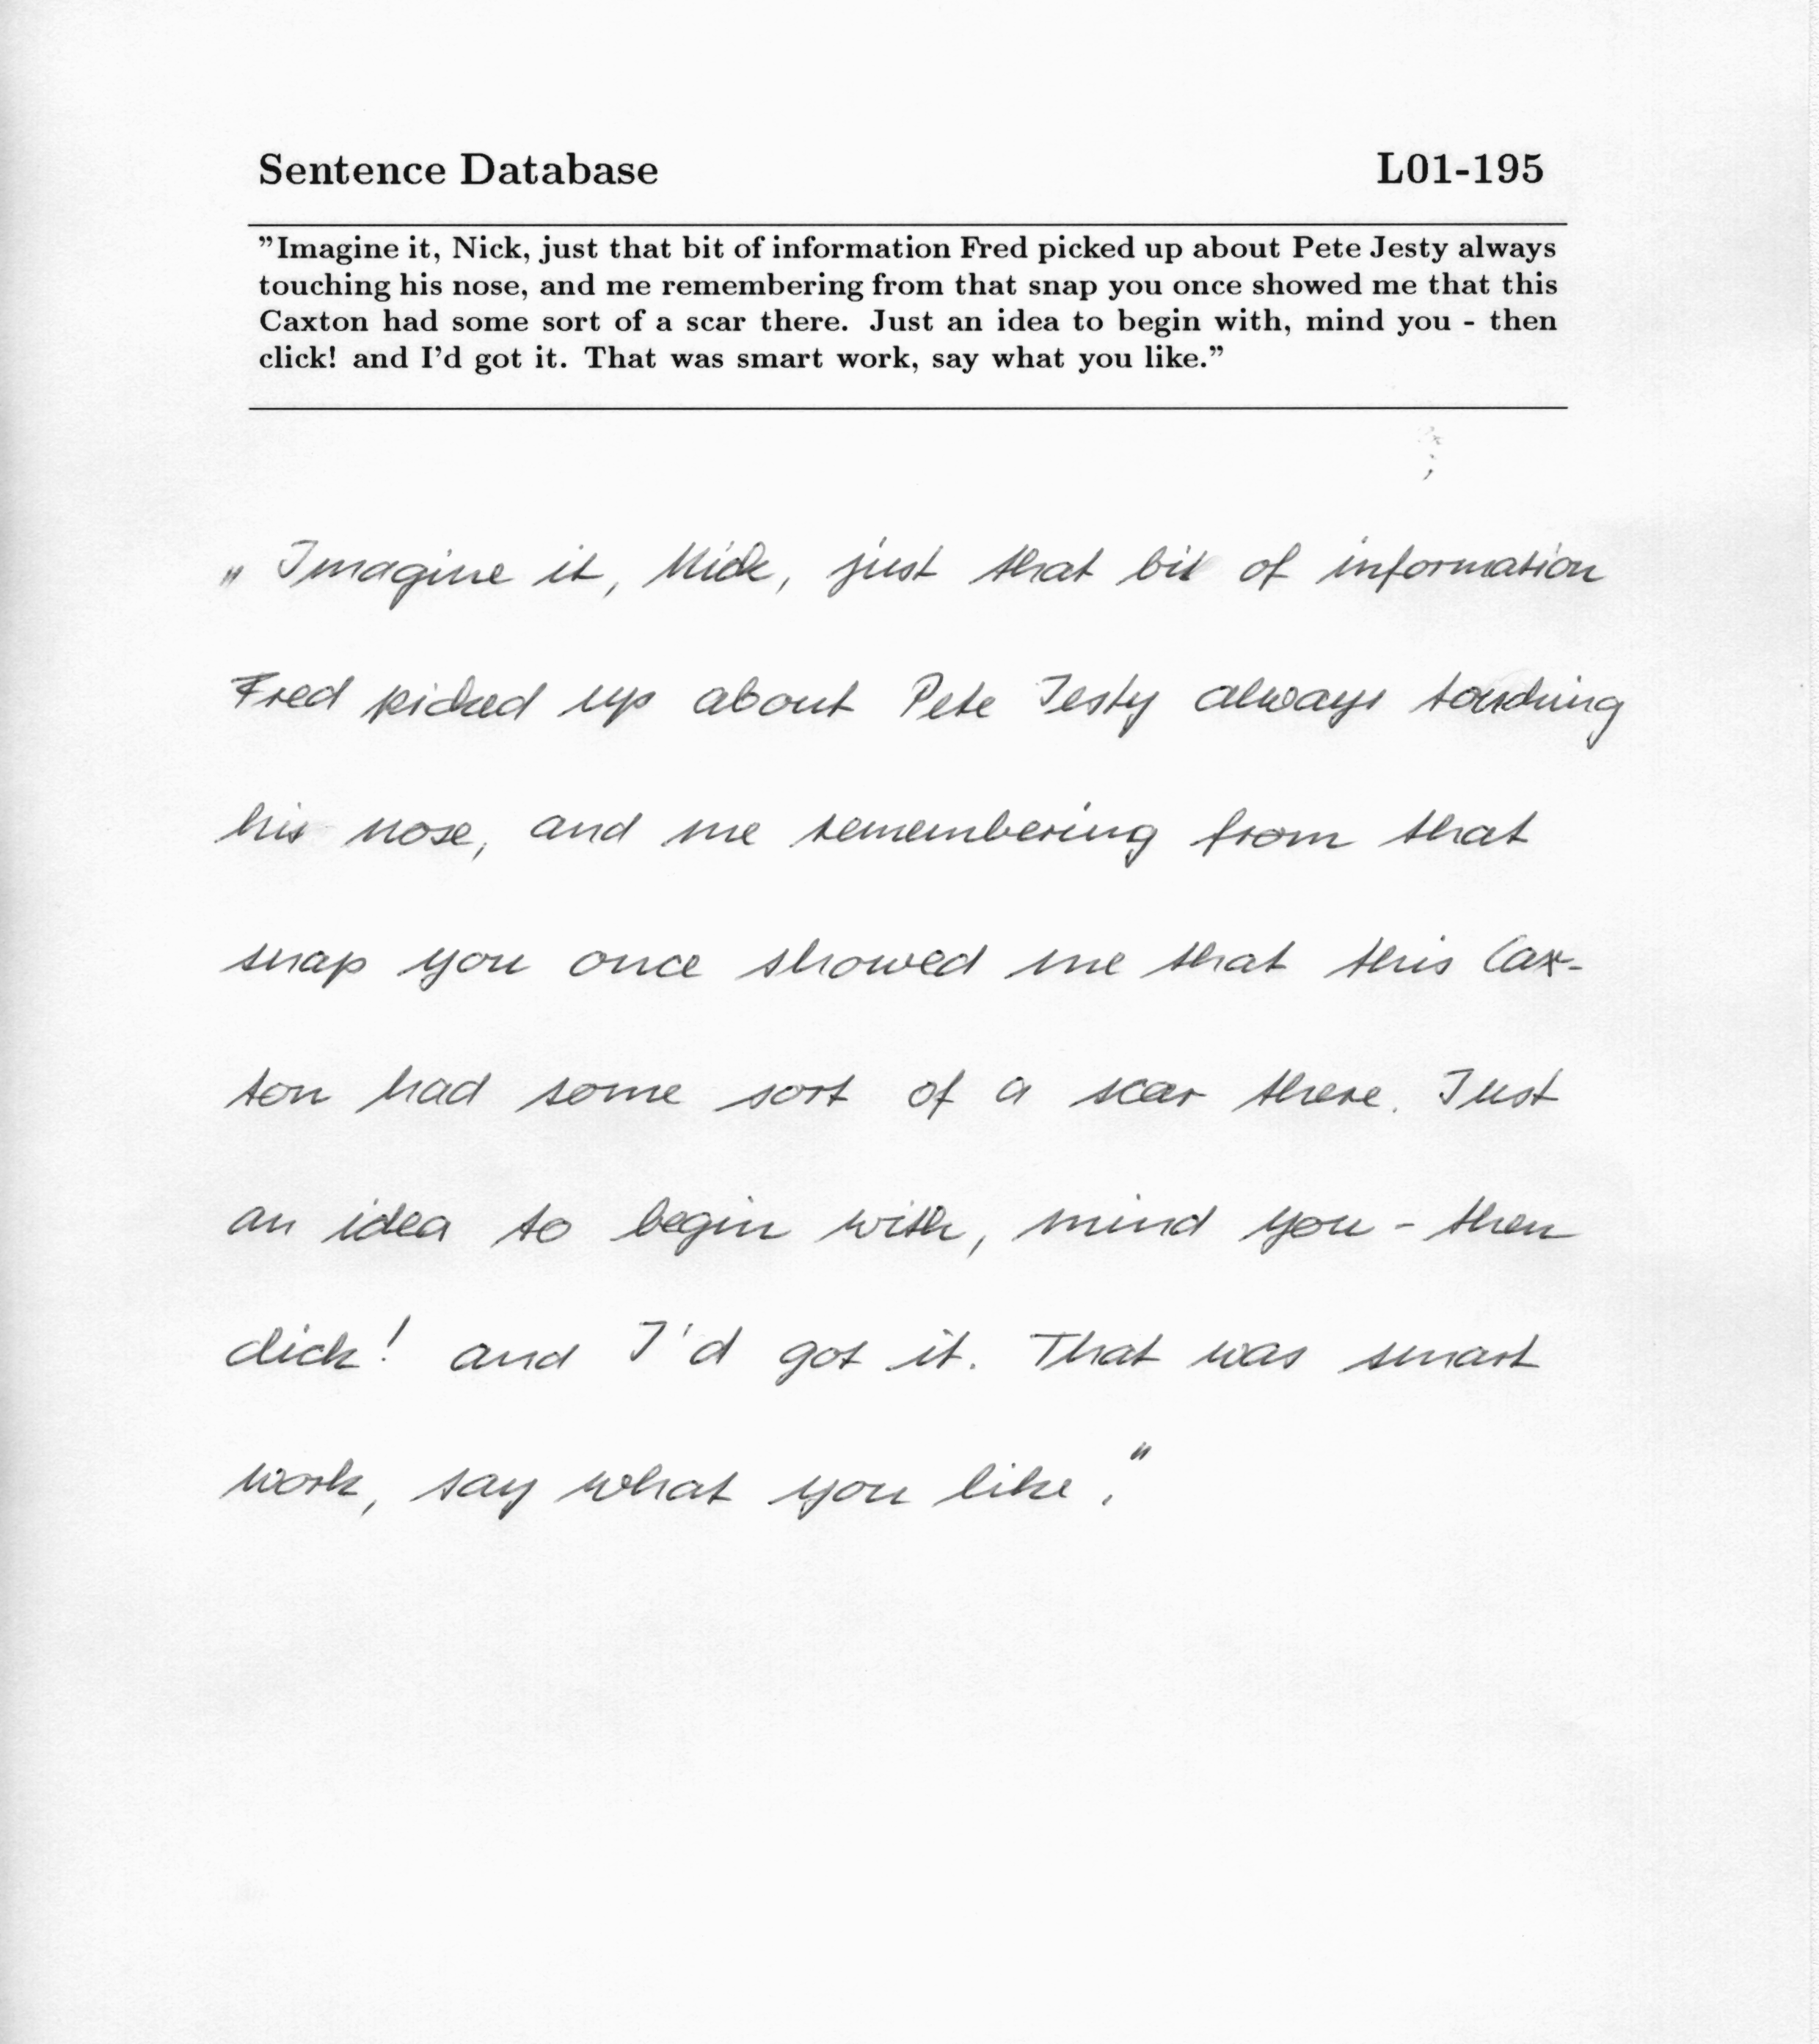 Sentence Database L01-195
"Imagine it, Nick, just that bit of information Fred picked up about Pete Jesty always
touching his nose, and me remembering from that snap you once showed me that this
Caxton had some sort of a scar there. Just an idea to begin with, mind you - then
click! and I'd got it. That was smart work, say what you like."
„Imagine it, Nick, just that bit of information
Fred picked up about Pete Jesty always touching
his nose, and me remembering from that
snap you once showed me that this Cax-
ton had some sort of a scar there. Just
an idea to begin with, mind you - then
click! and I'd got it. That was smart
work, say what you like."